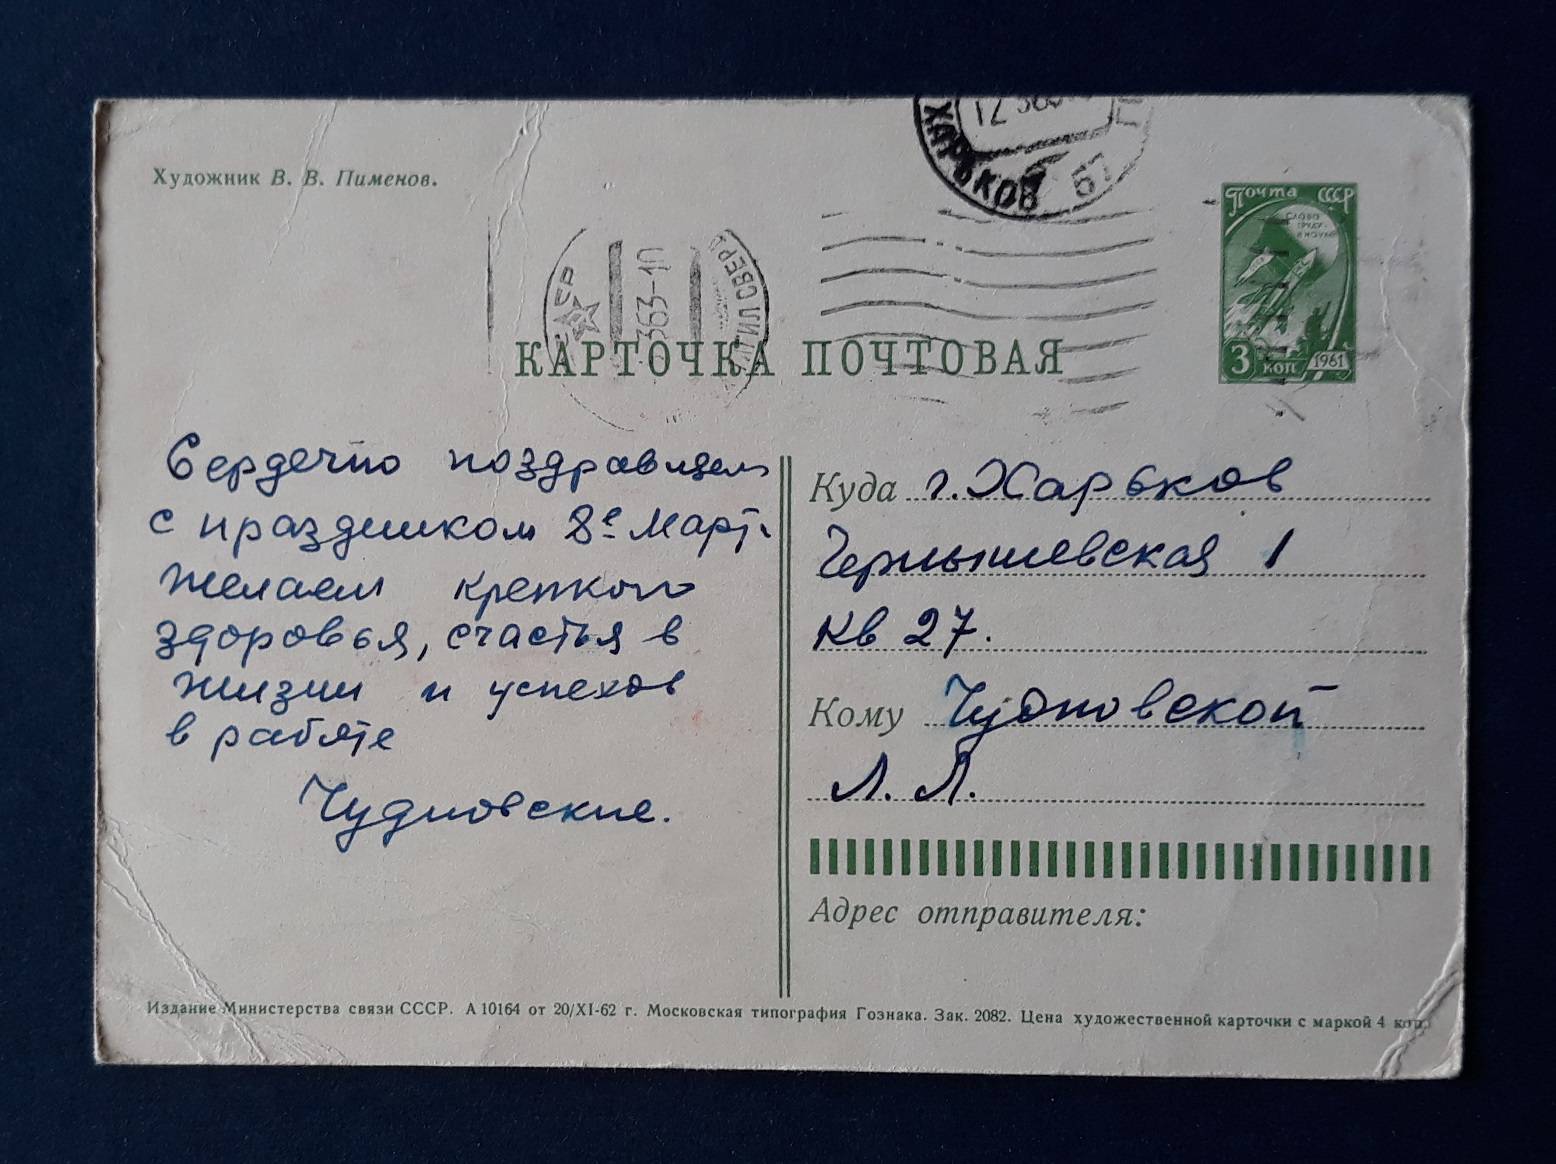 Художник В. В. Пименов.
ХАРЬКОВ 57
363-10
Почта СССР
3 коп 1961
КАРТОЧКА ПОЧТОВАЯ
Сердечно поздравляем
с праздником 8е Март.
Желаем крепкого
здоровья, счастья в
жизни и успехов
в работе
Чудновские.
Куда г. Харьков
Чернышевская 1
кв 27.
Кому Чудновской
Л. Л.
Адрес отправителя:
Издание Министерства связи СССР. А 10164 от 20/XI-62 г. Московская типография Гознака. Зак. 2082. Цена художественной карточки с маркой 4 коп.